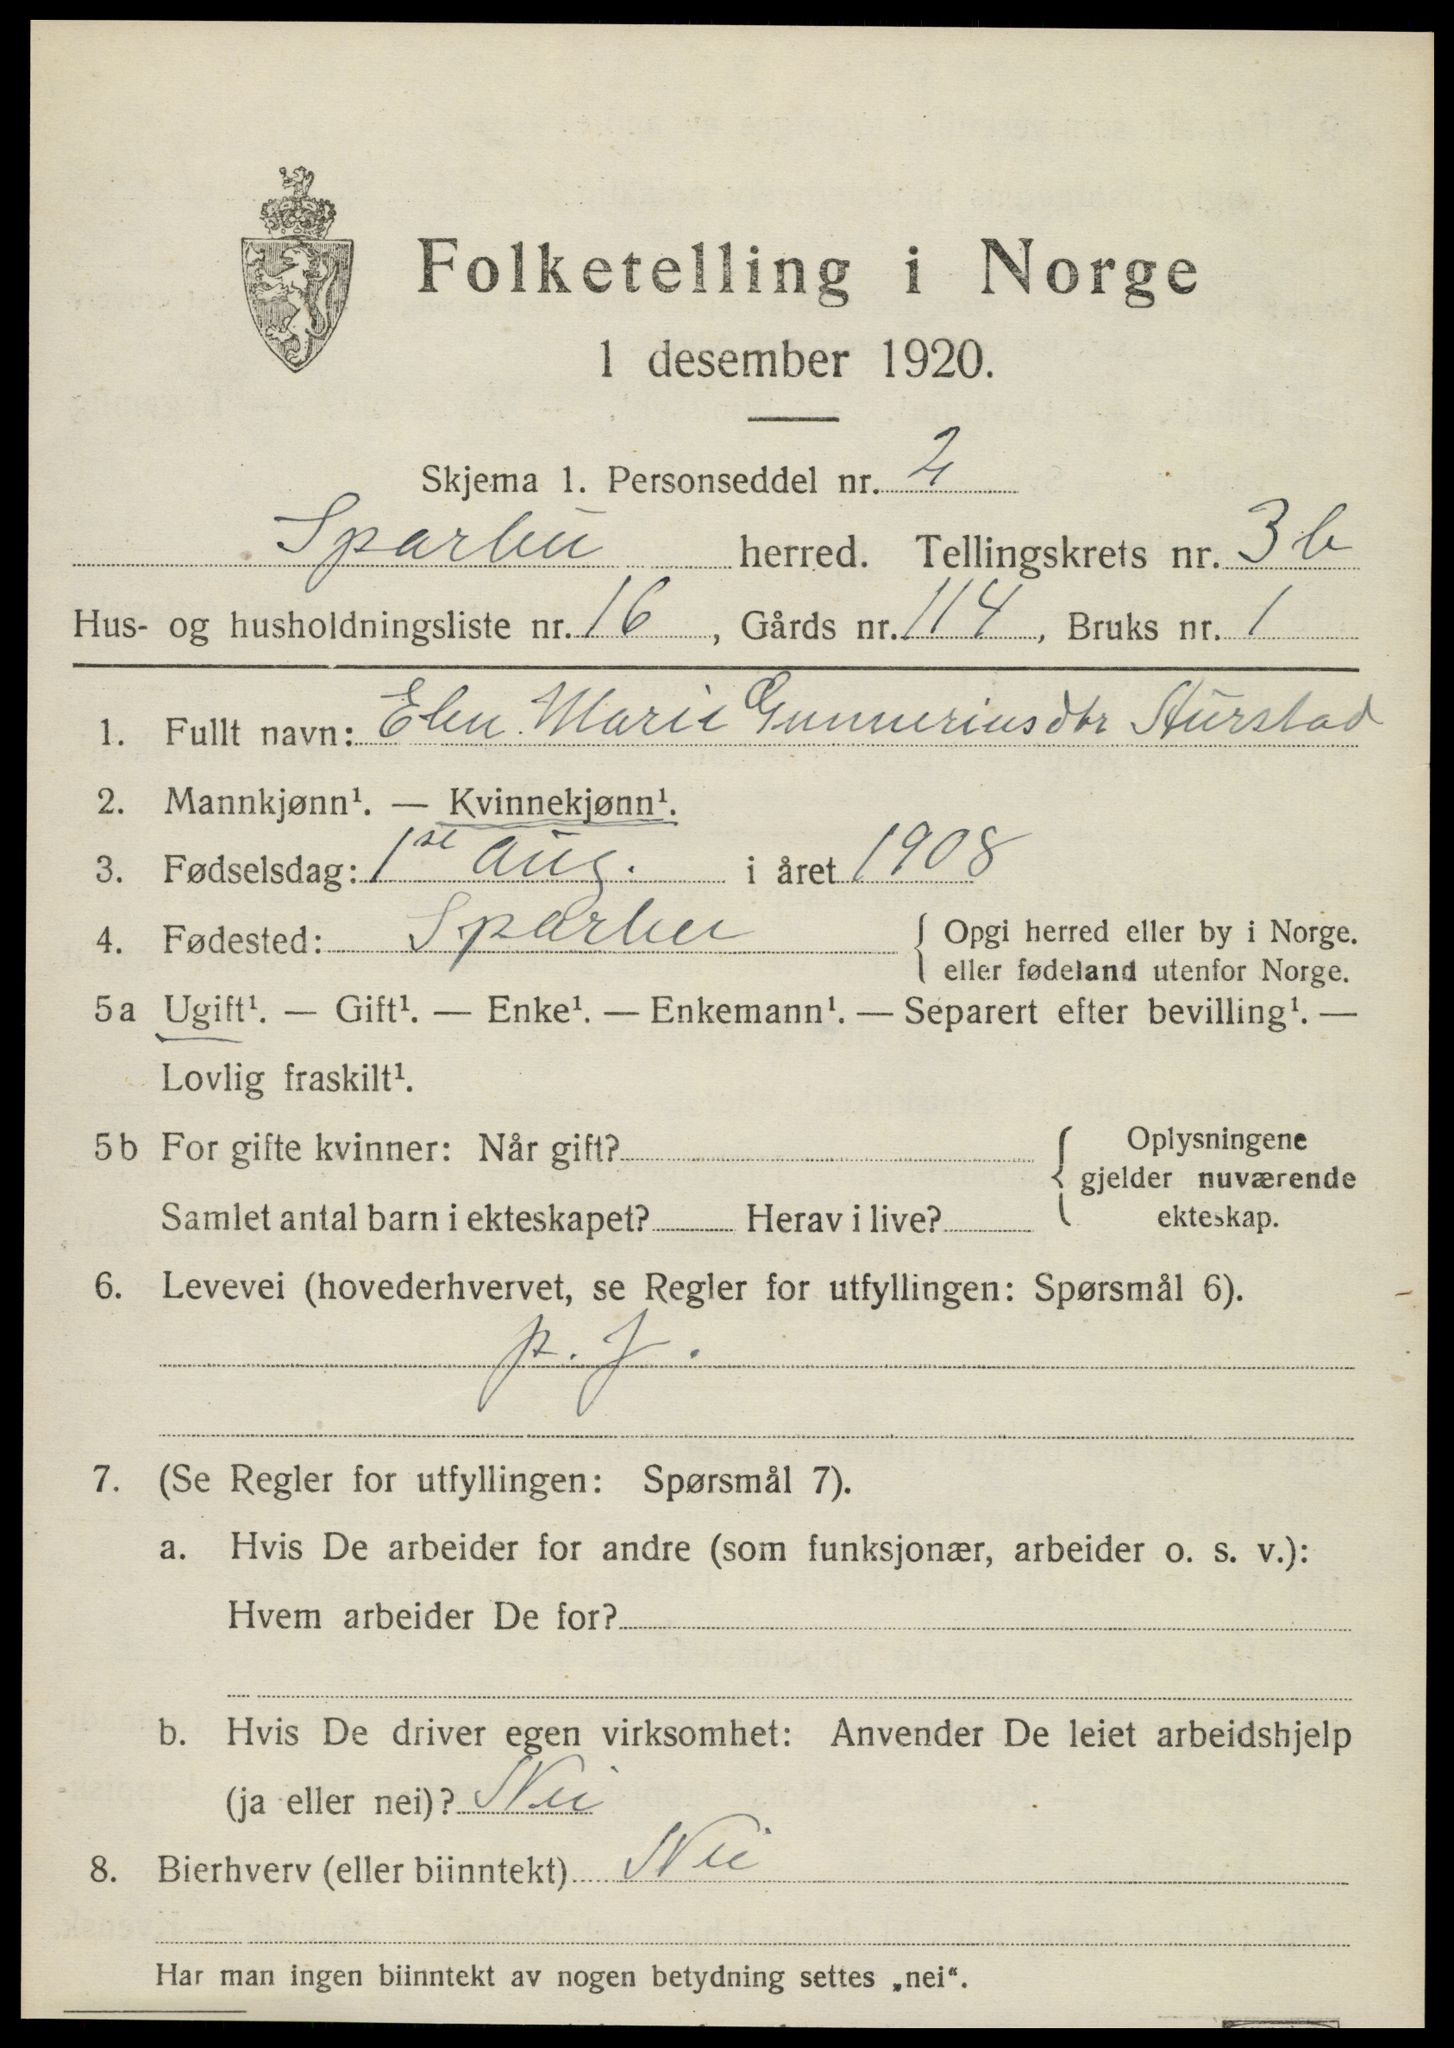 Folketelling i Norge
1 desember 1920.
Skjema 1. Personseddel nr. 2
Sparbu herred. Tellingskrets nr. 3 b
Hus- og husholdningsliste nr. 16, Gårds nr. 114, Bruks nr. 1
1. Fullt navn: Elen Marie Gunneriusdtr Stürstad
2. Mannkjønn¹. — Kvinnekjønn¹.
3. Fødselsdag: 1ste Aug. i året 1908
4. Fødested: Sparbu { Opgi herred eller by i Norge.
eller fødeland utenfor Norge.
5a Ugift¹. — Gift¹. — Enke¹. — Enkemann¹. — Separert efter bevilling¹. —
Lovlig fraskilt¹.
5b For gifte kvinner: Når gift? { Oplysningene
gjelder nuværende
Samlet antal barn i ekteskapet? Herav i live? ekteskap.
6. Levevei (hovederhvervet, se Regler for utfyllingen: Spørsmål 6).
p. f.
7. (Se Regler for utfyllingen: Spørsmål 7).
a. Hvis De arbeider for andre (som funksjonær, arbeider o. s. v.):
Hvem arbeider De for?
b. Hvis De driver egen virksomhet: Anvender De leiet arbeidshjelp
(ja eller nei)? Nei
8. Bierhverv (eller biinntekt) Nei
Har man ingen biinntekt av nogen betydning settes „nei“.